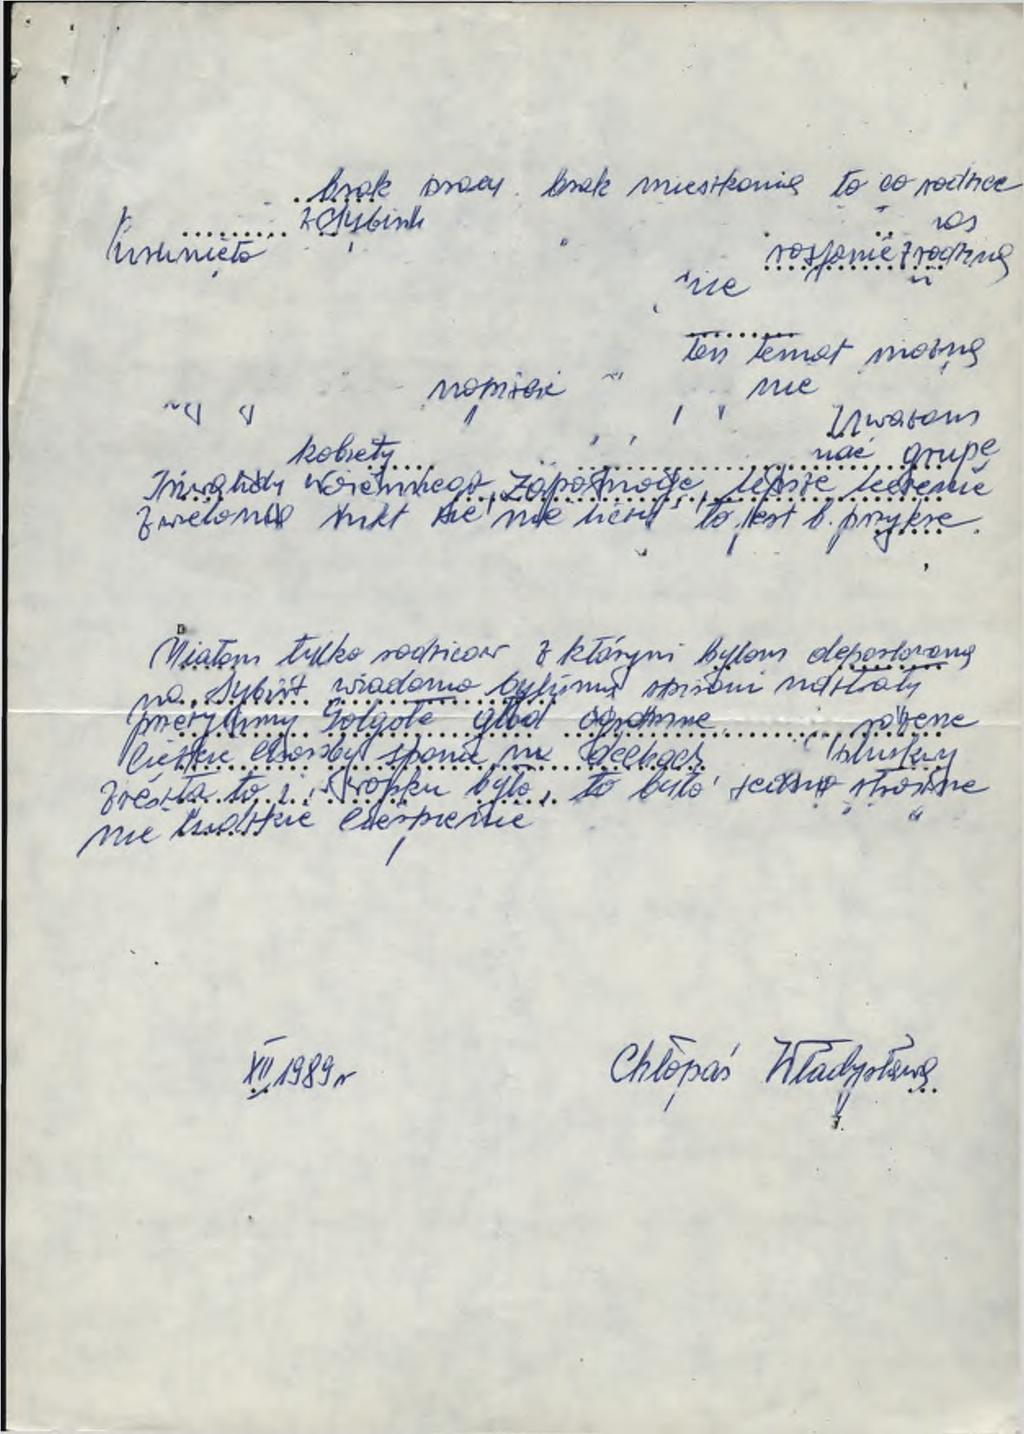 brak pracy. brak mieszkania to co rodzice
z Sybiru nas
Usunięto rozstanie z rodziną
nie
ten temat można
napisać nie
Uważam
kobiety nać grupę
Inwalidy Wojennego, zapomogę, lepsze leczenie
z wieloma nikt się nie liczy to jest b. przykre.
Miałam tylko rodziców z którymi byłam deportowaną
na Sybir. wiadomo byliśmy
przeżyliśmy Golgotę głód ogromne różne
ciężkie choroby spanie na dechach
zresztą to było, to było jedno straszne
nie ludzkie cierpienie
XII 1989 r Chłopaś Władysława